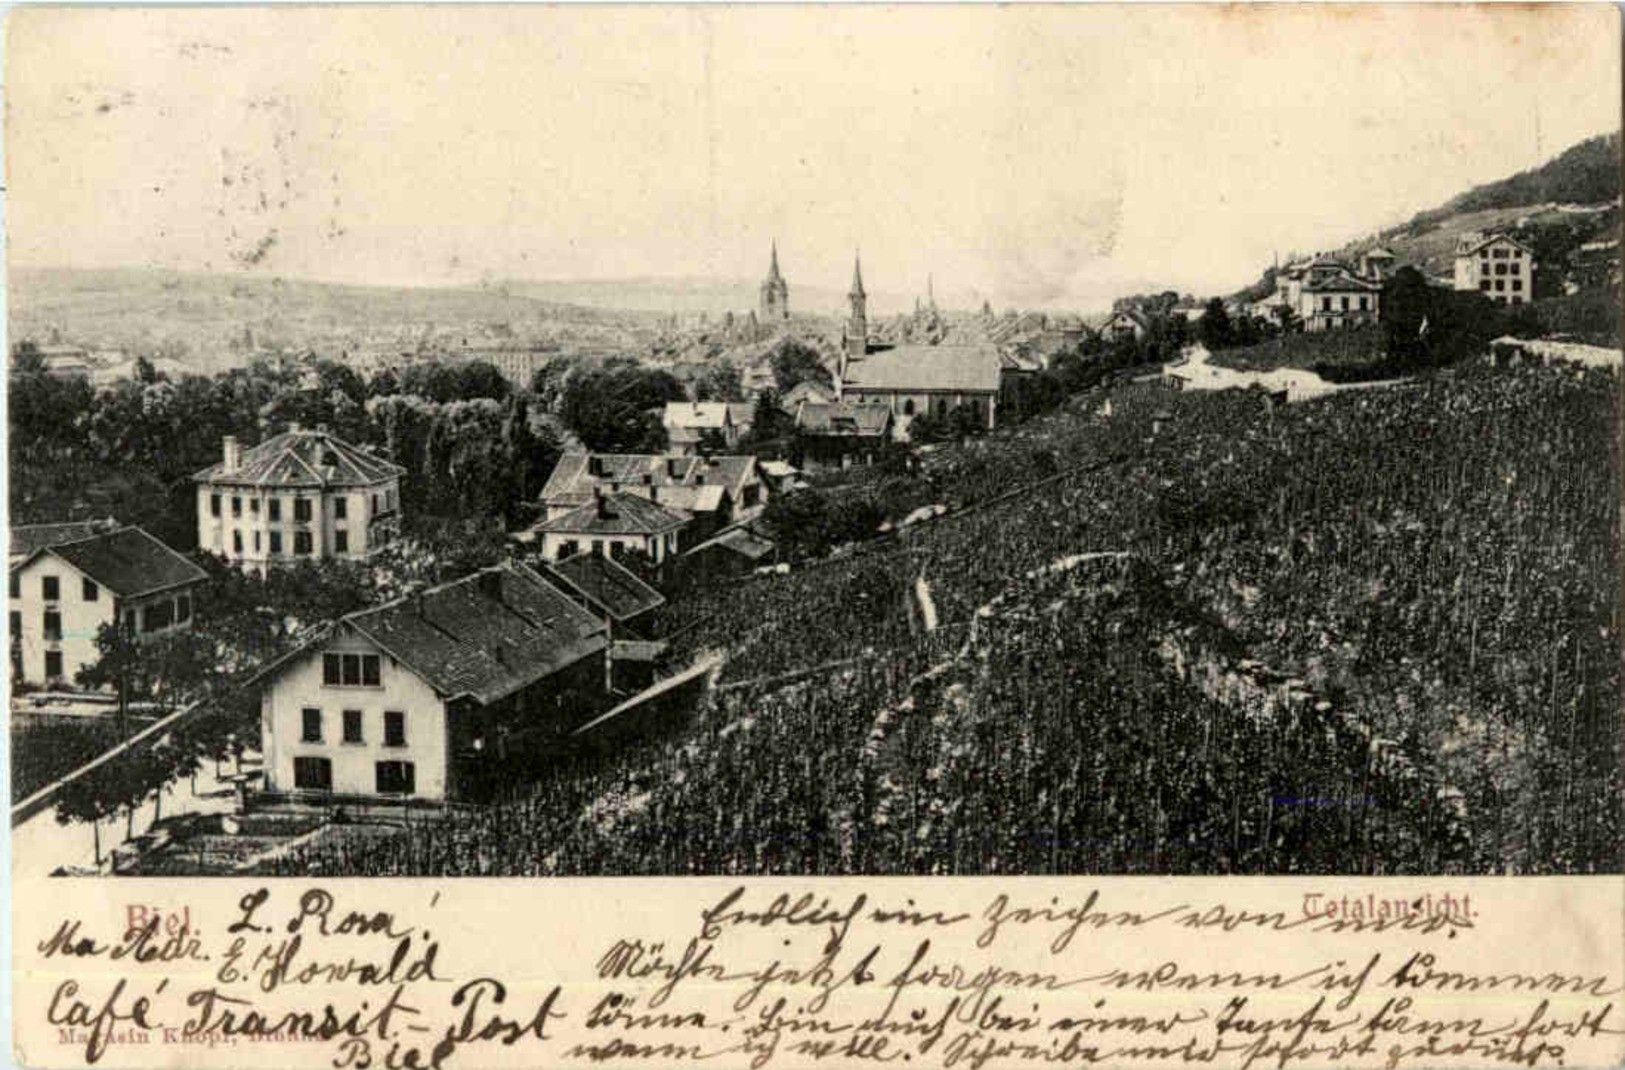 Biel.
Totalansicht.
L. Rosa!
Ma Adr. E. Howald
Café Transit - Post
Biel
Magasin Knopf, Bienne
Endlich ein Zeichen von mir.
Möchte jetzt fragen wenn ich kommen
könne. Bin auch bei einer Tante kann fort
wenn ich will. Schreibe mir sofort zurück.